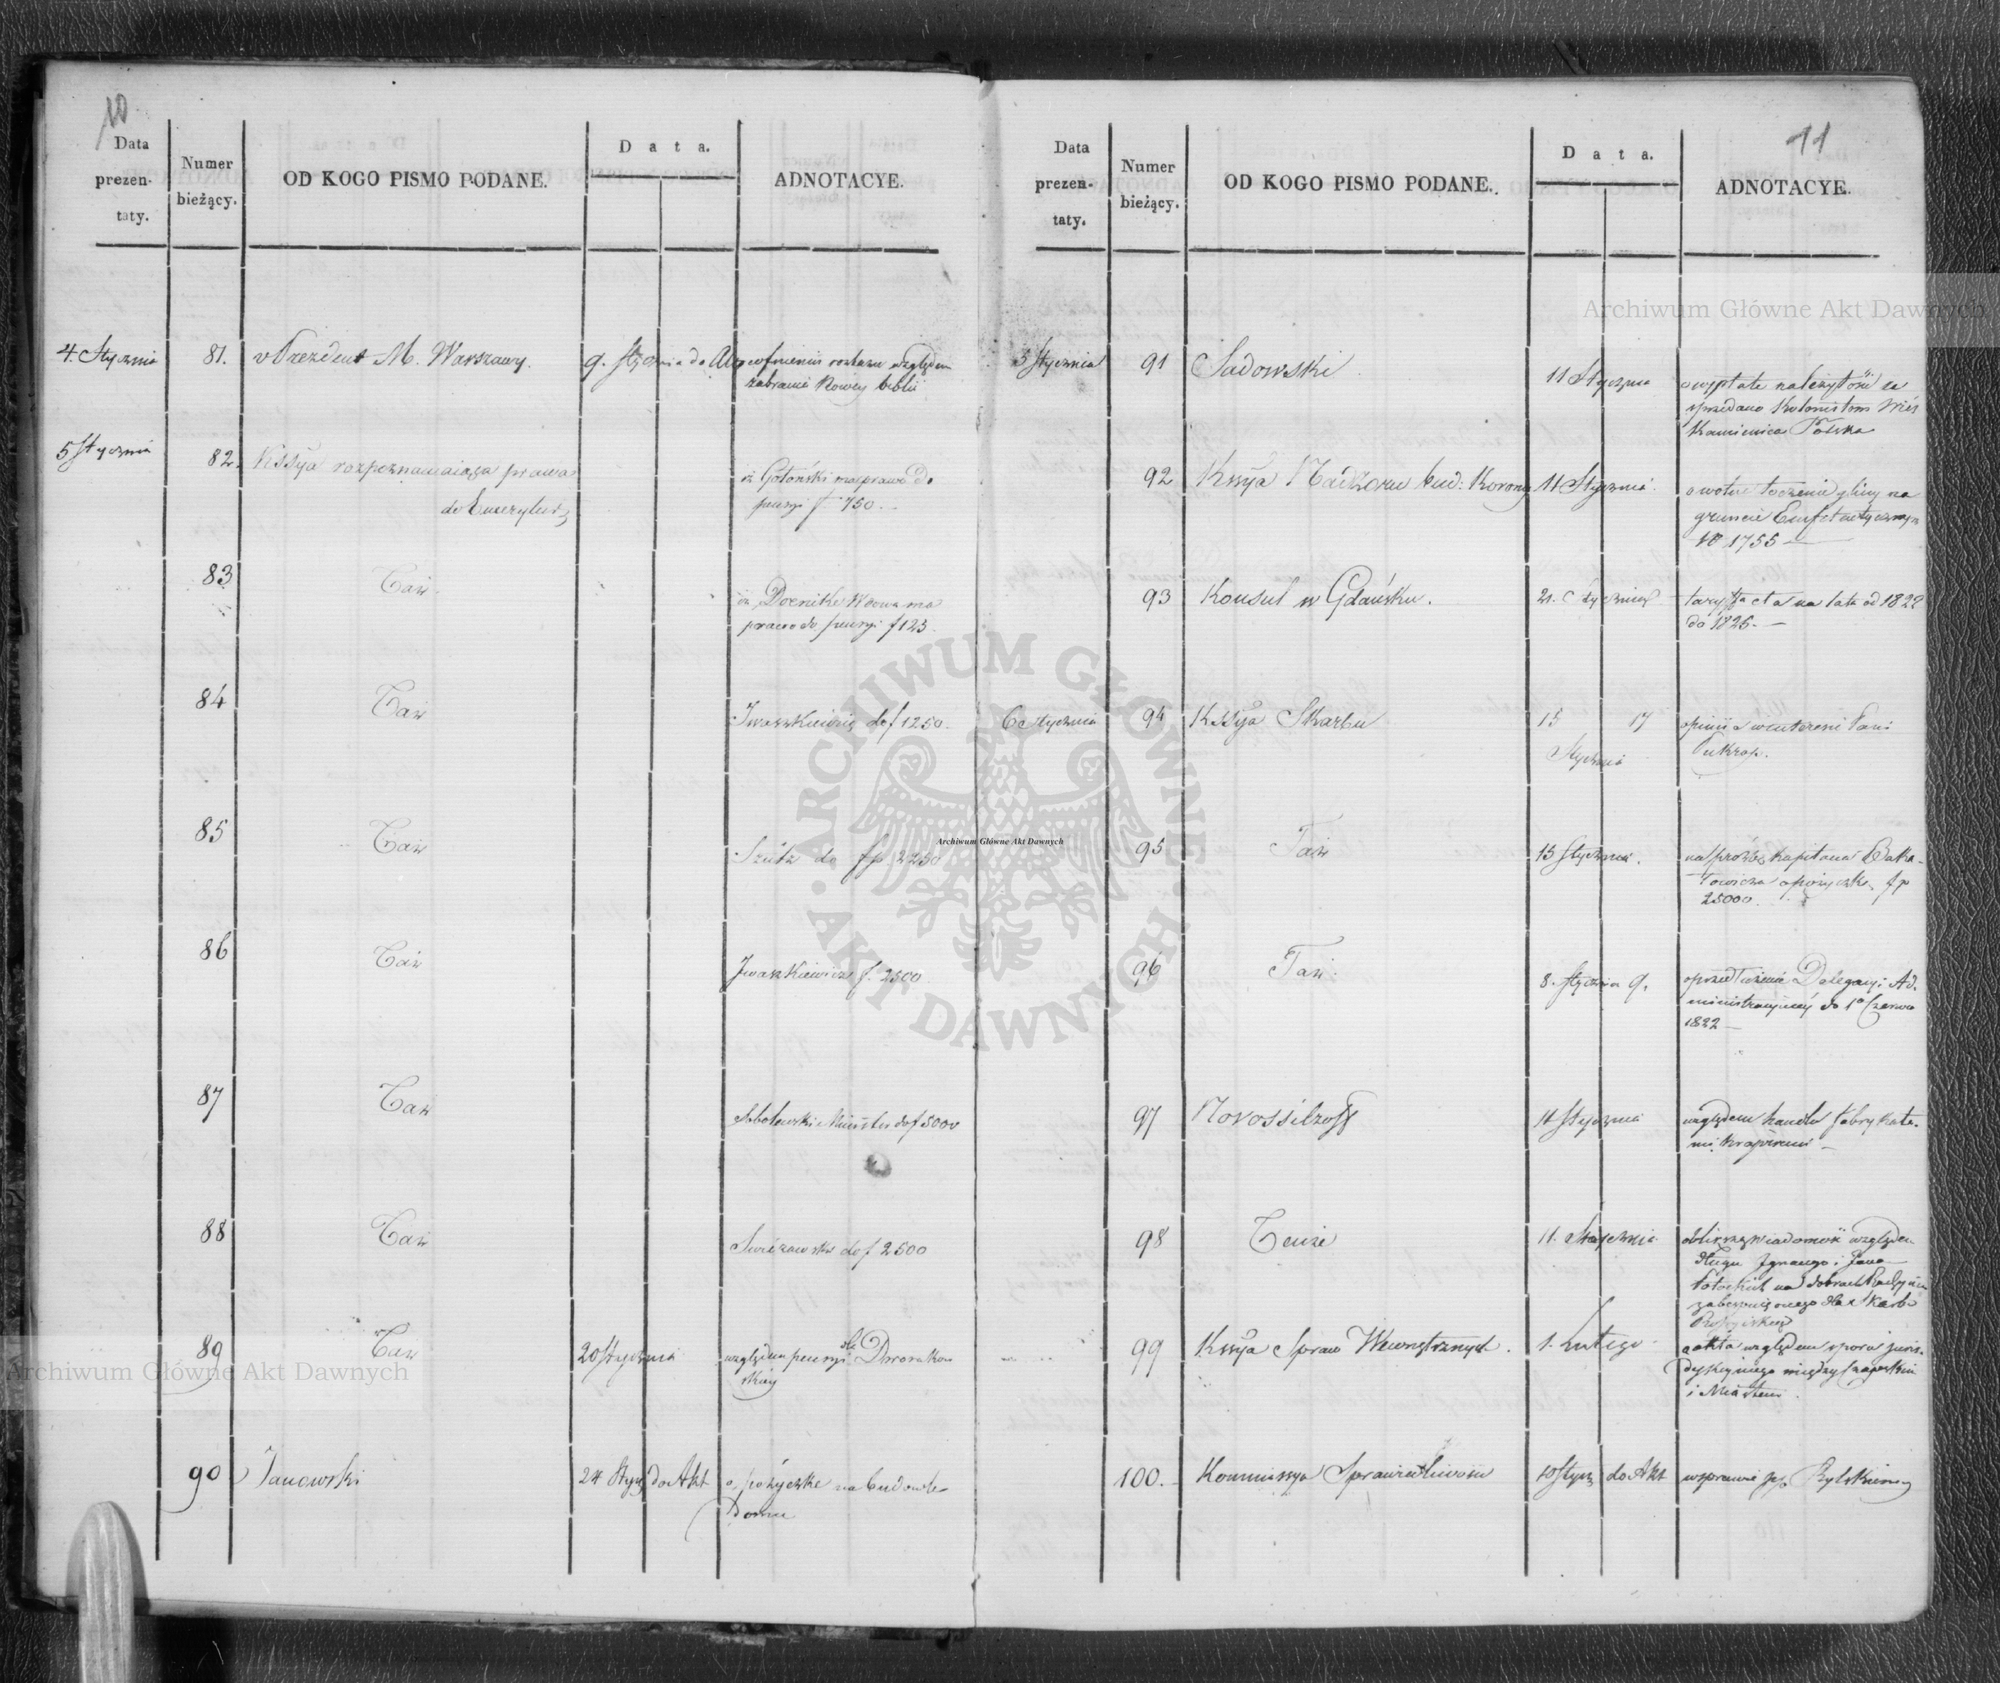 10
Data
prezen-
taty.
Numer
bieżący.
OD KOGO PISMO PODANE.
Data.
ADNOTACYE.
4. Stycznia 81. Prezydent M. Warszawy. 9. Stycznia do Akt względem
zabrania nowey
5 Stycznia 82. Kssya rozpoznawaiąca prawa
do Emerytur
iż ma prawo do
pensyi f 750.
83 Taż
iż ma
prawo do pensyi f 125.
84 Taż
Iwaszkiewicz do f 1250.
85 Taż
Szütz do fp 2250
86 Taż
Iwaszkiewicz f. 2500
87 Taż
Sobolewski Minister do f 5000
88 Taż
do f 2500
89 Taż 20 Stycznia
względem pensyi dla Dworakow
skiey
90 Janowski 24 Stycz do Akt o pożyczkę na budowle
Domu
11
Data
prezen-
taty.
Numer
bieżący.
OD KOGO PISMO PODANE.
Data.
ADNOTACYE.
5 Stycznia 91 Sadowski 11 Stycznia
o wypłatę należytości za
sprzedane Kolonistom Wieś
Kamienica Polska
92 Kssya Nadzoru bud: Korony 11 Stycznia
gliny na
gruncie Emfiteutycznym
N 1755
93 Konsul w Gdańsku. 21. Stycznia
taryffa cła na lata od 1822
do 1825.
6 Stycznia 94 Kssya Skarbu 15 17
Stycznia
opinia w interesie Pani
95 Taż 15 Stycznia.
na prośbę Kapitana
o pożyczkę fp
25000.
96 Taż. 8. Stycznia 9.
o przedłużenie Delegacyi Ad-
ministracyiney do 1o Czerwca
1822
97 Novossilzoff 11 Stycznia
względem handlu fabrykata-
mi kraiowemi
98 Tenże 11. Stycznia
wiadomość względem
długu Ignacego i Jana
Potockich na dobrach
99 Kssya Spraw Wewnętrznych. 1. Lutego
akta względem sporu juris-
dykcyinego między
i Miastem
100. Kommissya Sprawiedliwości 10 Stycz do Akt w sprawie pp
Archiwum Główne Akt Dawnych
Archiwum Główne Akt Dawnych
Archiwum Główne Akt Dawnych
ARCHIWUM GŁÓWNE
AKT DAWNYCH